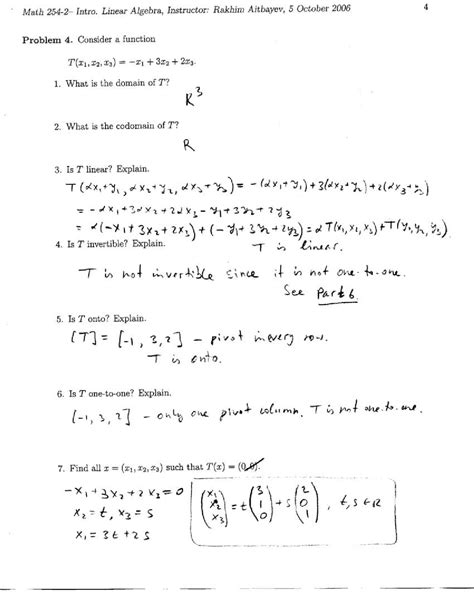 Math 254-2– Intro. Linear Algebra, Instructor: Rakhim Aitbayev, 5 October 2006 4
Problem 4. Consider a function
T(x₁, x₂, x₃) = −x₁ + 3x₂ + 2x₃.
1. What is the domain of T?
R³
2. What is the codomain of T?
R
3. Is T linear? Explain.
T(αx₁+y₁, αx₂+y₂, αx₃+y₃) = −(αx₁+y₁)+3(αx₂+y₂)+2(αx₃+y₃)
= −αx₁+3αx₂+2αx₃−y₁+3y₂+2y₃
= α(−x₁+3x₂+2x₃)+(−y₁+3y₂+2y₃)=αT(x₁,x₂,x₃)+T(y₁,y₂,y₃).
T is linear.
4. Is T invertible? Explain.
T is not invertible since it is not one-to-one.
See Part 6.
5. Is T onto? Explain.
[T] = [-1, 3, 2] – pivot in every row.
T is onto.
6. Is T one-to-one? Explain.
[-1, 3, 2] – only one pivot column. T is not one-to-one.
7. Find all x = (x₁, x₂, x₃) such that T(x) = (0,0).
−x₁+3x₂+2x₃=0
x₂=t, x₃=s
x₁=3t+2s
(x₁ x₂ x₃) = t(3 1 0) + s(2 0 1), t,s∈R